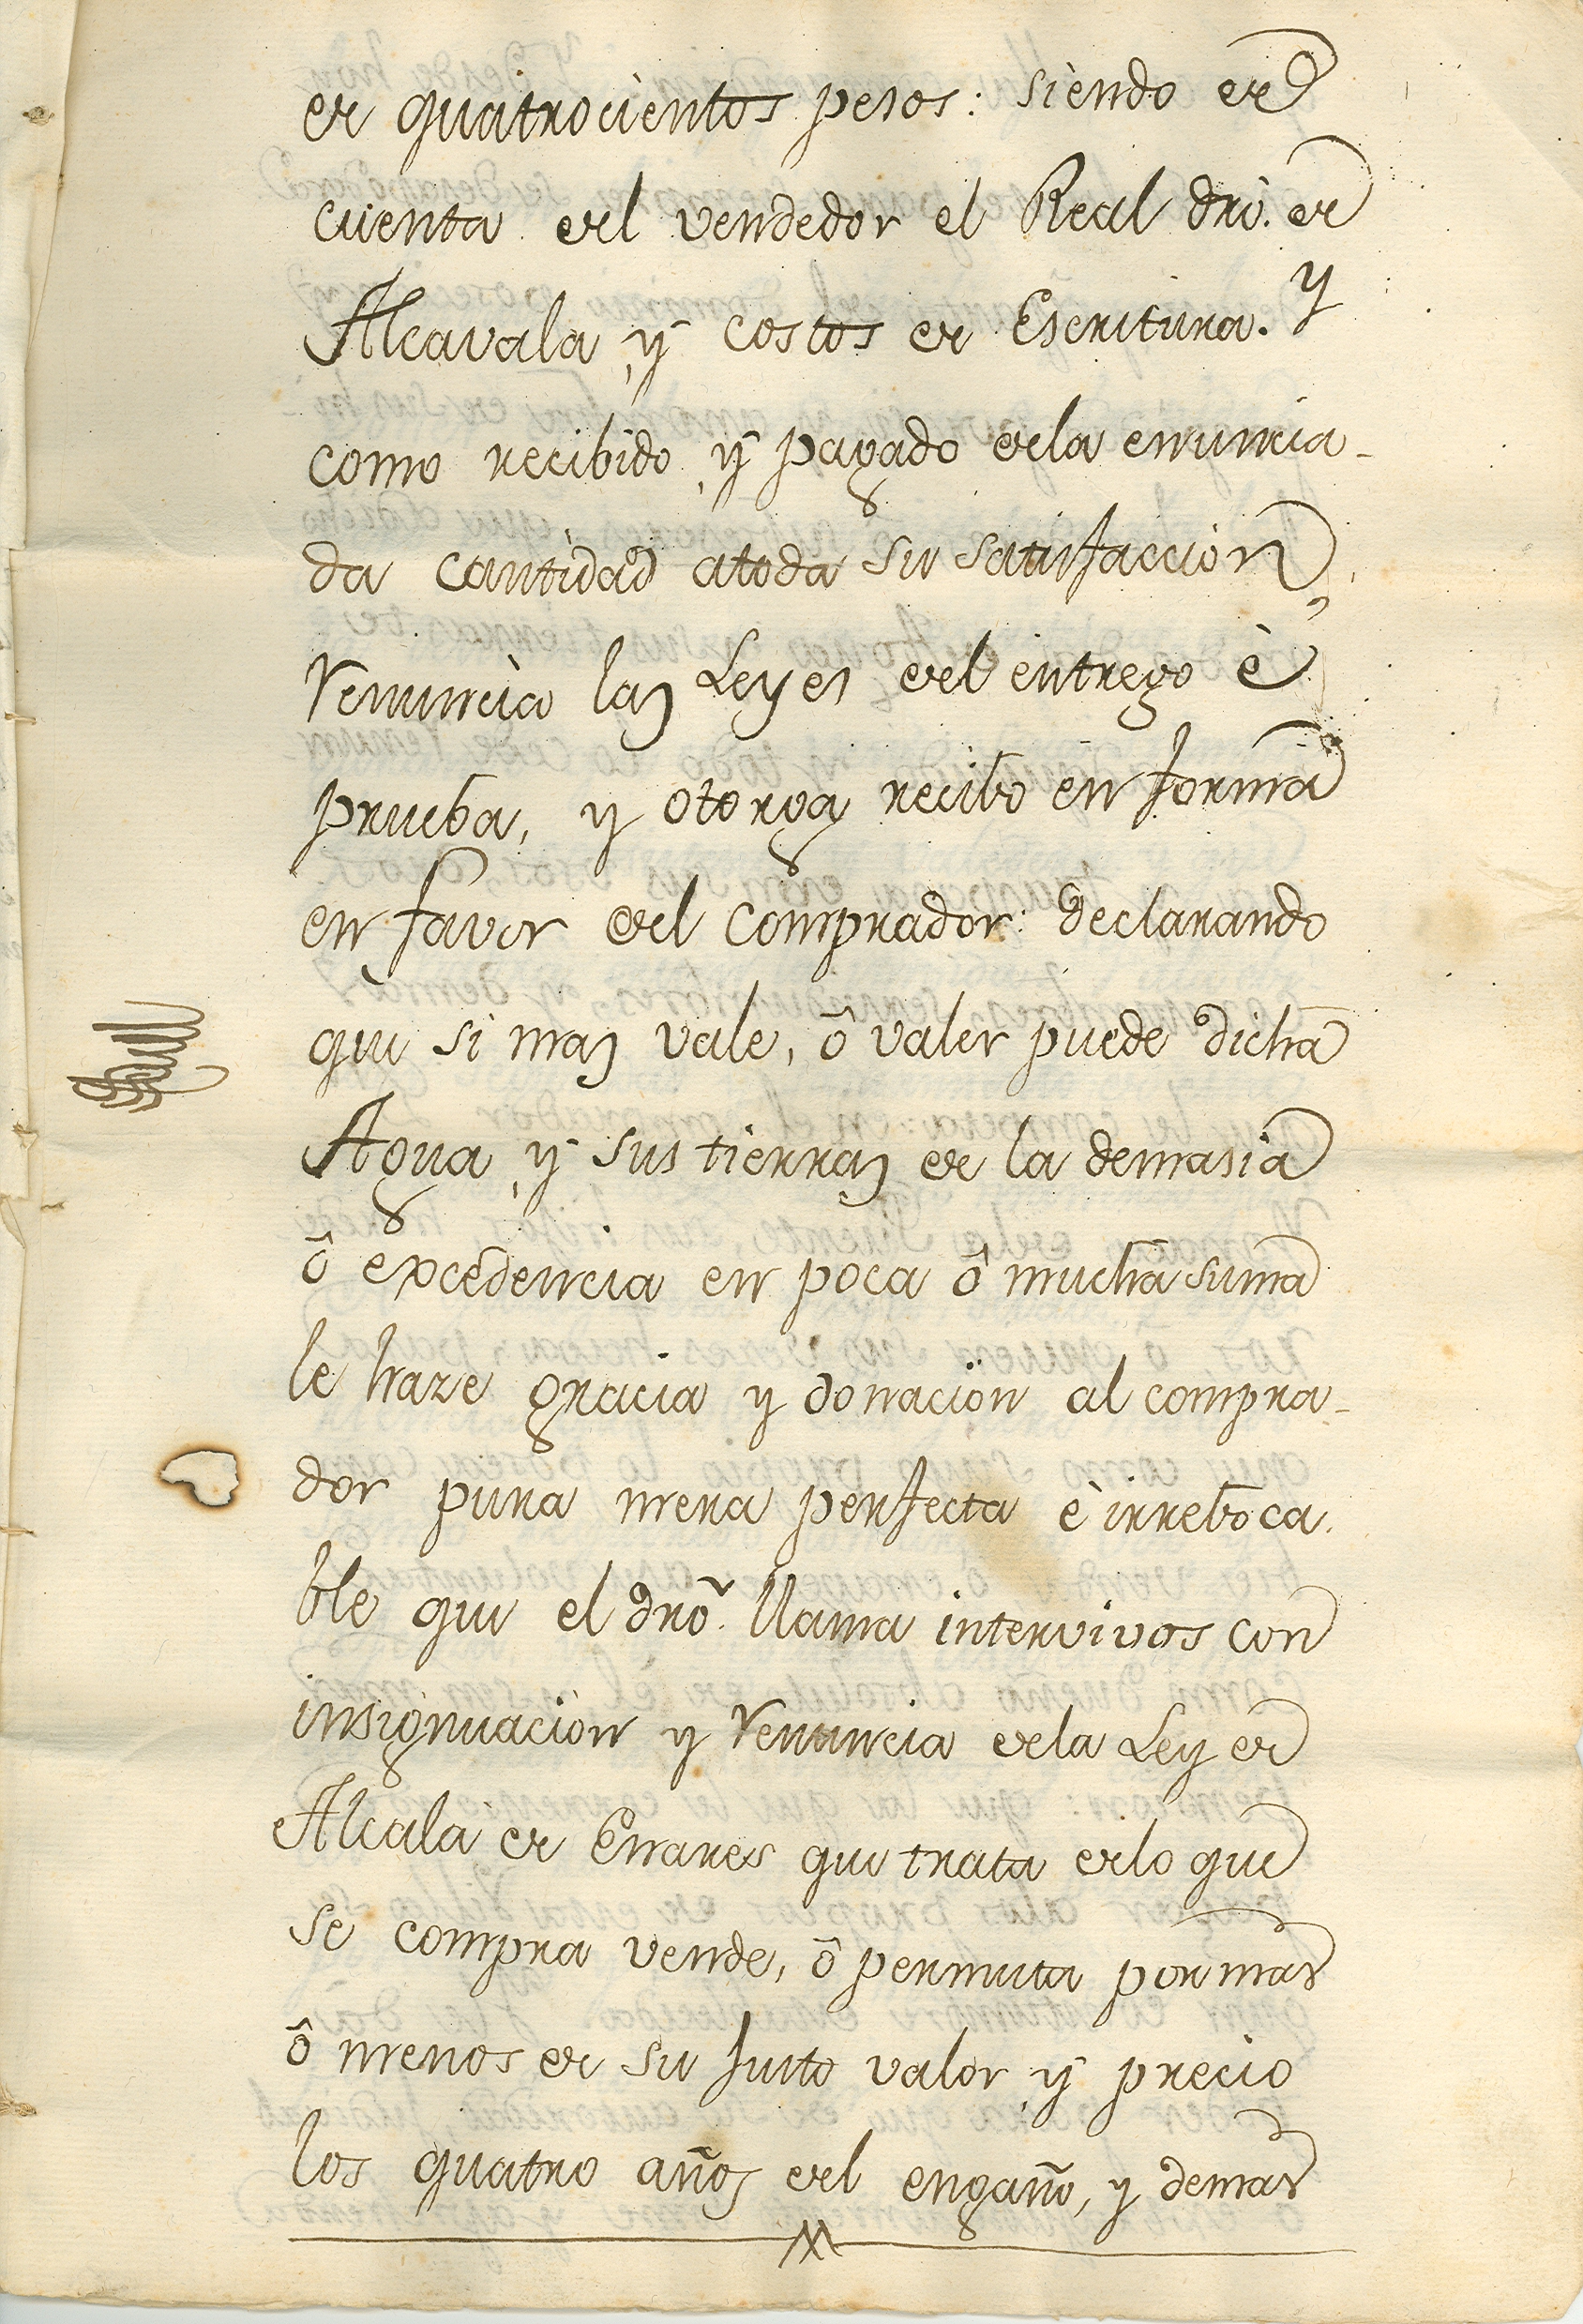 de quatrocientos pesos: siendo de
cuenta del vendedor el Real dro. de
Alcavala y costos de Escritura. Y
como recibido y pagado dela enuncia-
da cantidad atoda su satisfaccion,
renuncia las Leyes del entrego è
prueba, y otorga recibo en forma
en favor del comprador: declarando
que si mas vale, ô valer puede dicha
Agua y sus tierras de la demasia
ô excedencia en poca ô mucha suma
le haze gracia y donacion al compra-
dor pura mera perfecta è irreboca-
ble que el dro. llama intervivos con
insignuacion y renuncia dela Ley de
Alcalà de Enares que trata delo que
se compra vende, ô permuta por mas
ô menos de su justo valor y precio
los quatro años del engaño, y demas